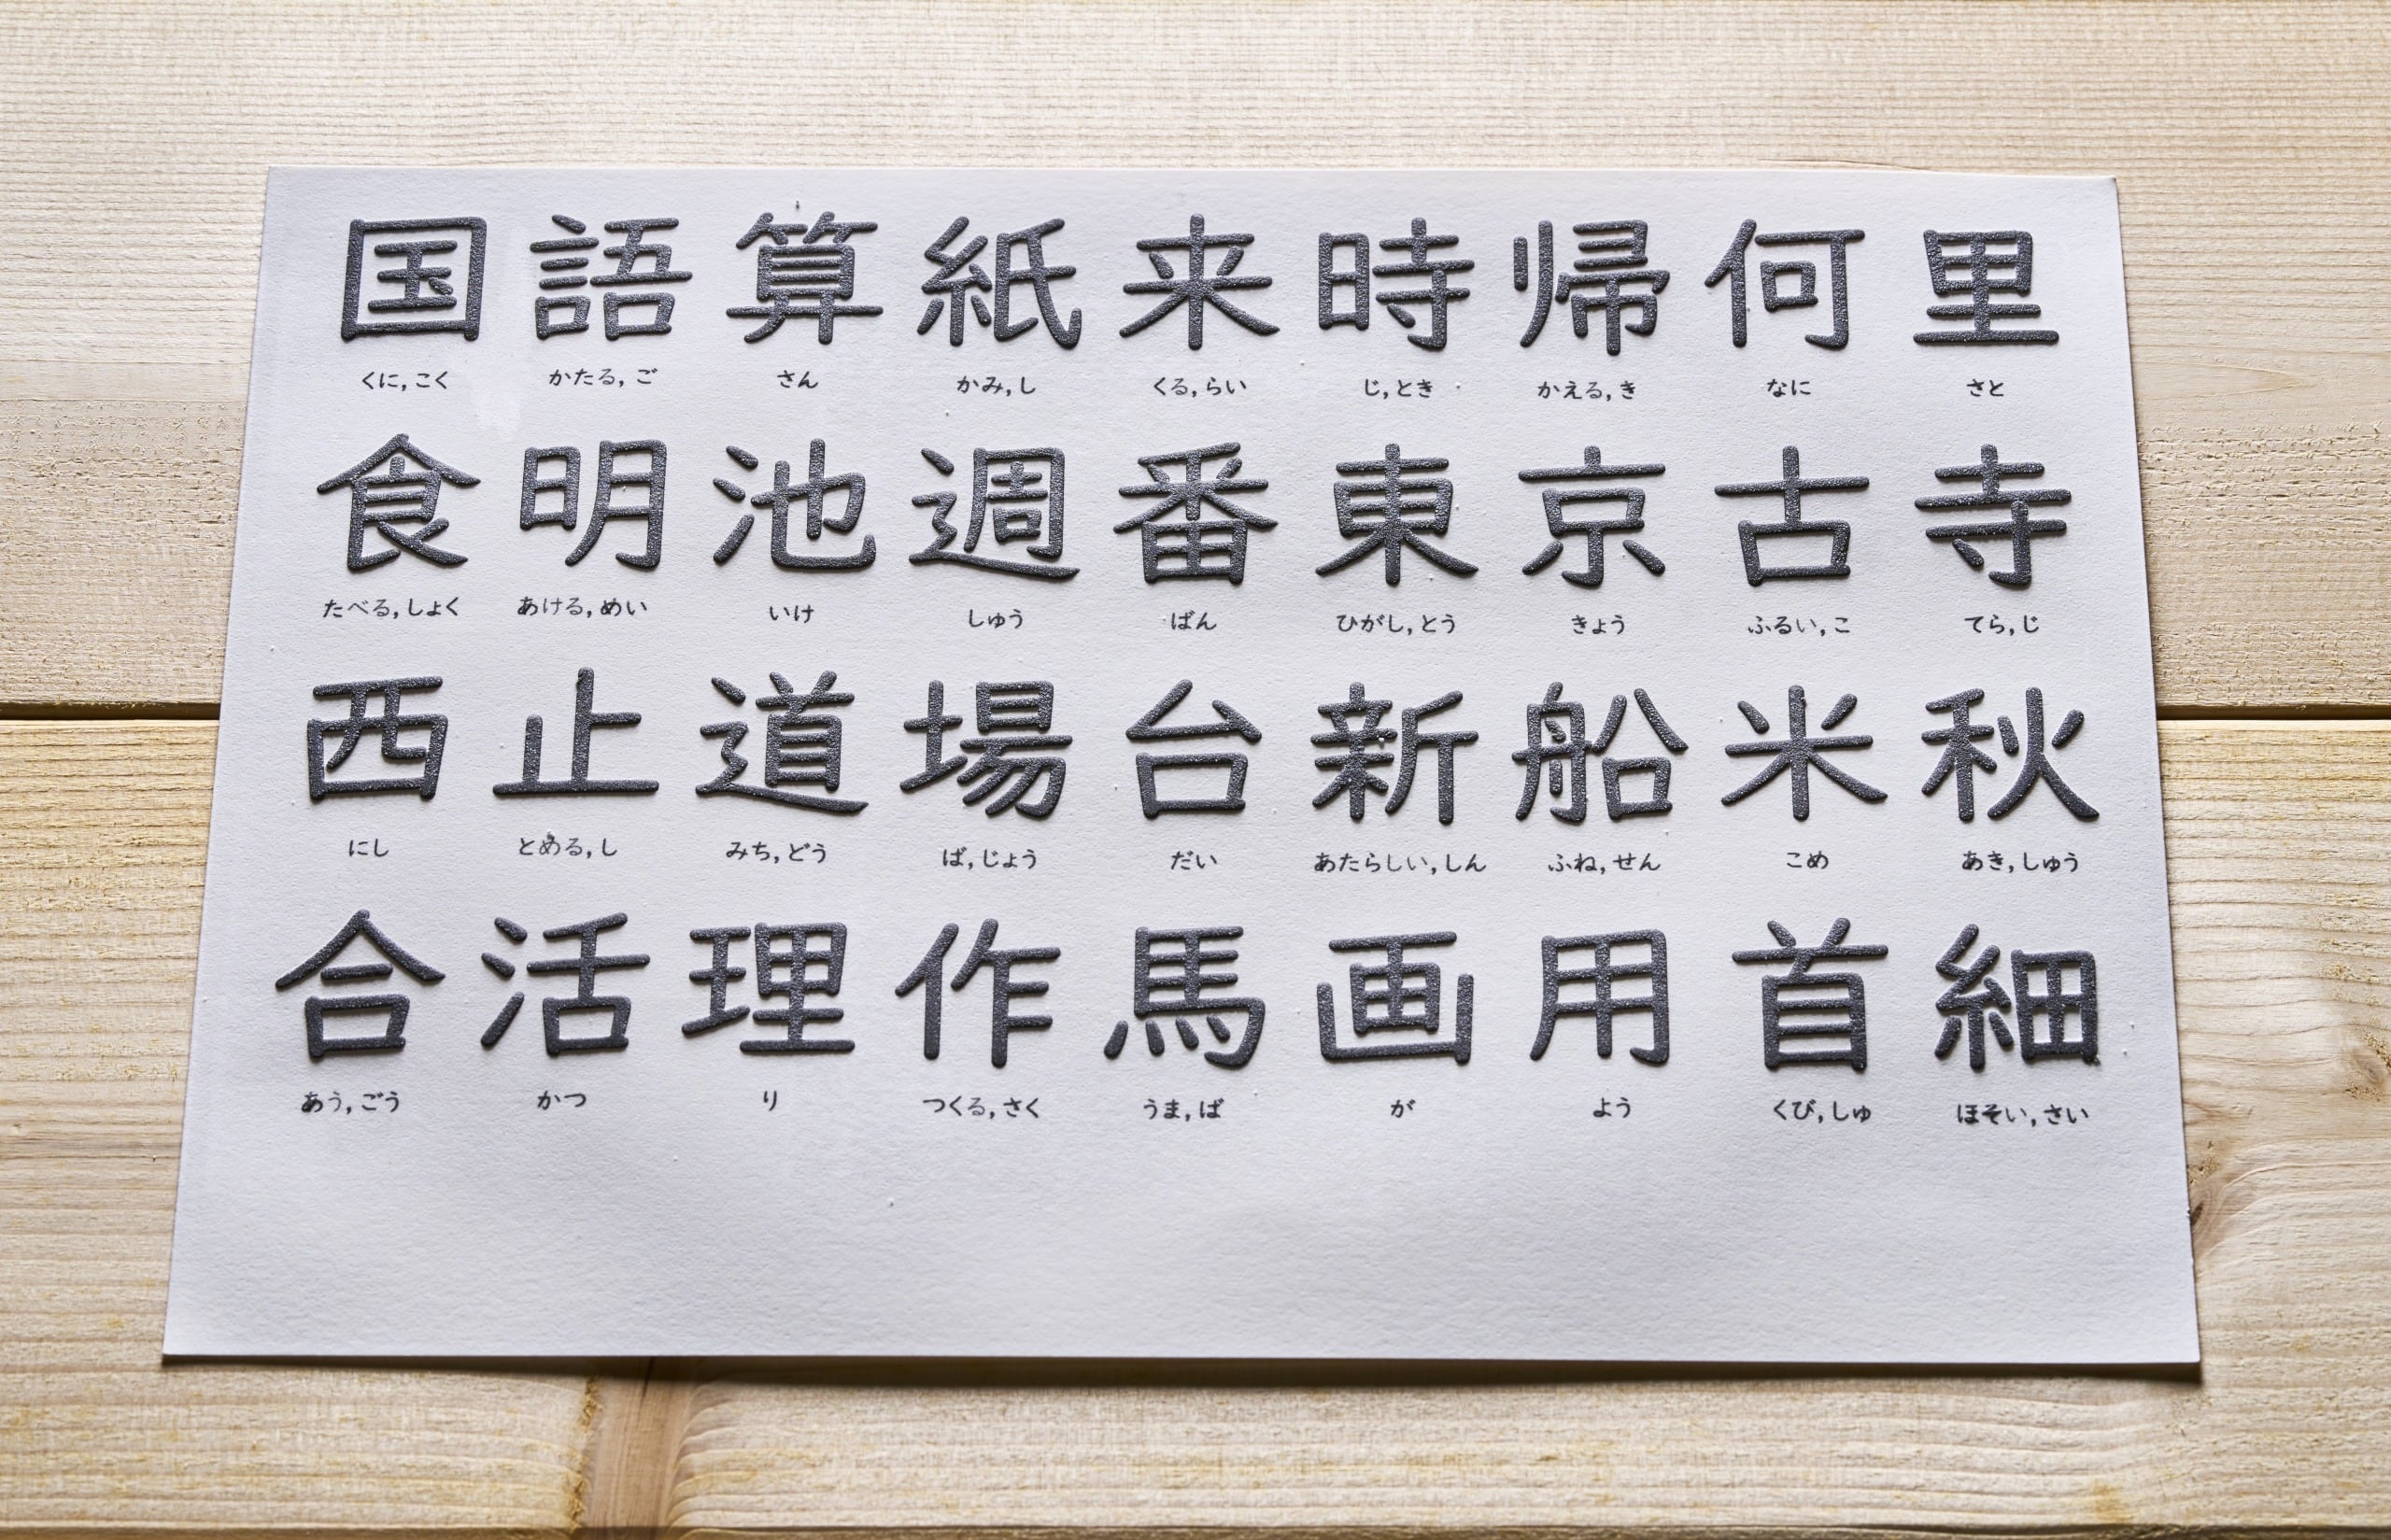 国 語 算 紙 来 時 帰 何 里
くに,こく かたる,ご さん かみ,し くる,らい じ,とき かえる,き なに さと
食 明 池 週 番 東 京 古 寺
たべる,しょく あける,めい いけ しゅう ばん ひがし,とう きょう ふるい,こ てら,じ
西 止 道 場 台 新 船 米 秋
にし とめる,し みち,どう ば,じょう だい あたらしい,しん ふね,せん こめ あき,しゅう
合 活 理 作 馬 画 用 首 細
あう,ごう かつ り つくる,さく うま,ば が よう くび,しゅ ほそい,さい